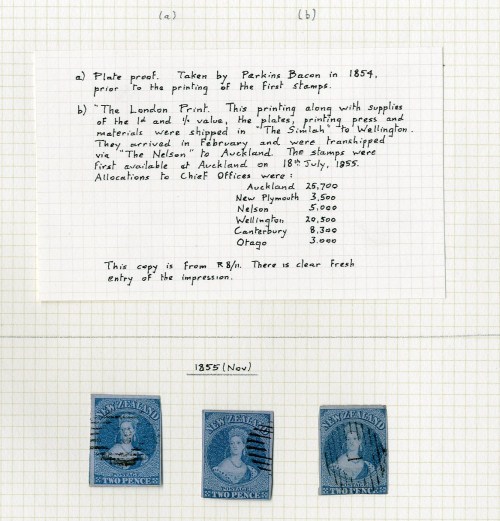 (a) (b)
a) Plate proof. Taken by Perkins Bacon in 1854,
prior to the printing of the first stamps.
b) "The London Print. This printing along with supplies
of the 1d and 1/- value, the plates, printing press and
materials were shipped in "The Simlah" to Wellington.
They arrived in February and were transhipped
via "The Nelson" to Auckland. The stamps were
first available at Auckland on 18th July, 1855.
Allocations to Chief Offices were :
Auckland 25,700
New Plymouth 3,500
Nelson 5.000
Wellington 20,500
Canterbury 8,300
Otago 3.000
This copy is from R8/11. There is clear fresh
entry of the impression.
1855 (Nov)
NEW ZEALAND
POSTAGE
TWO PENCE
NEW ZEALAND
POSTAGE
TWO PENCE
NEW ZEALAND
POSTAGE
TWO PENC